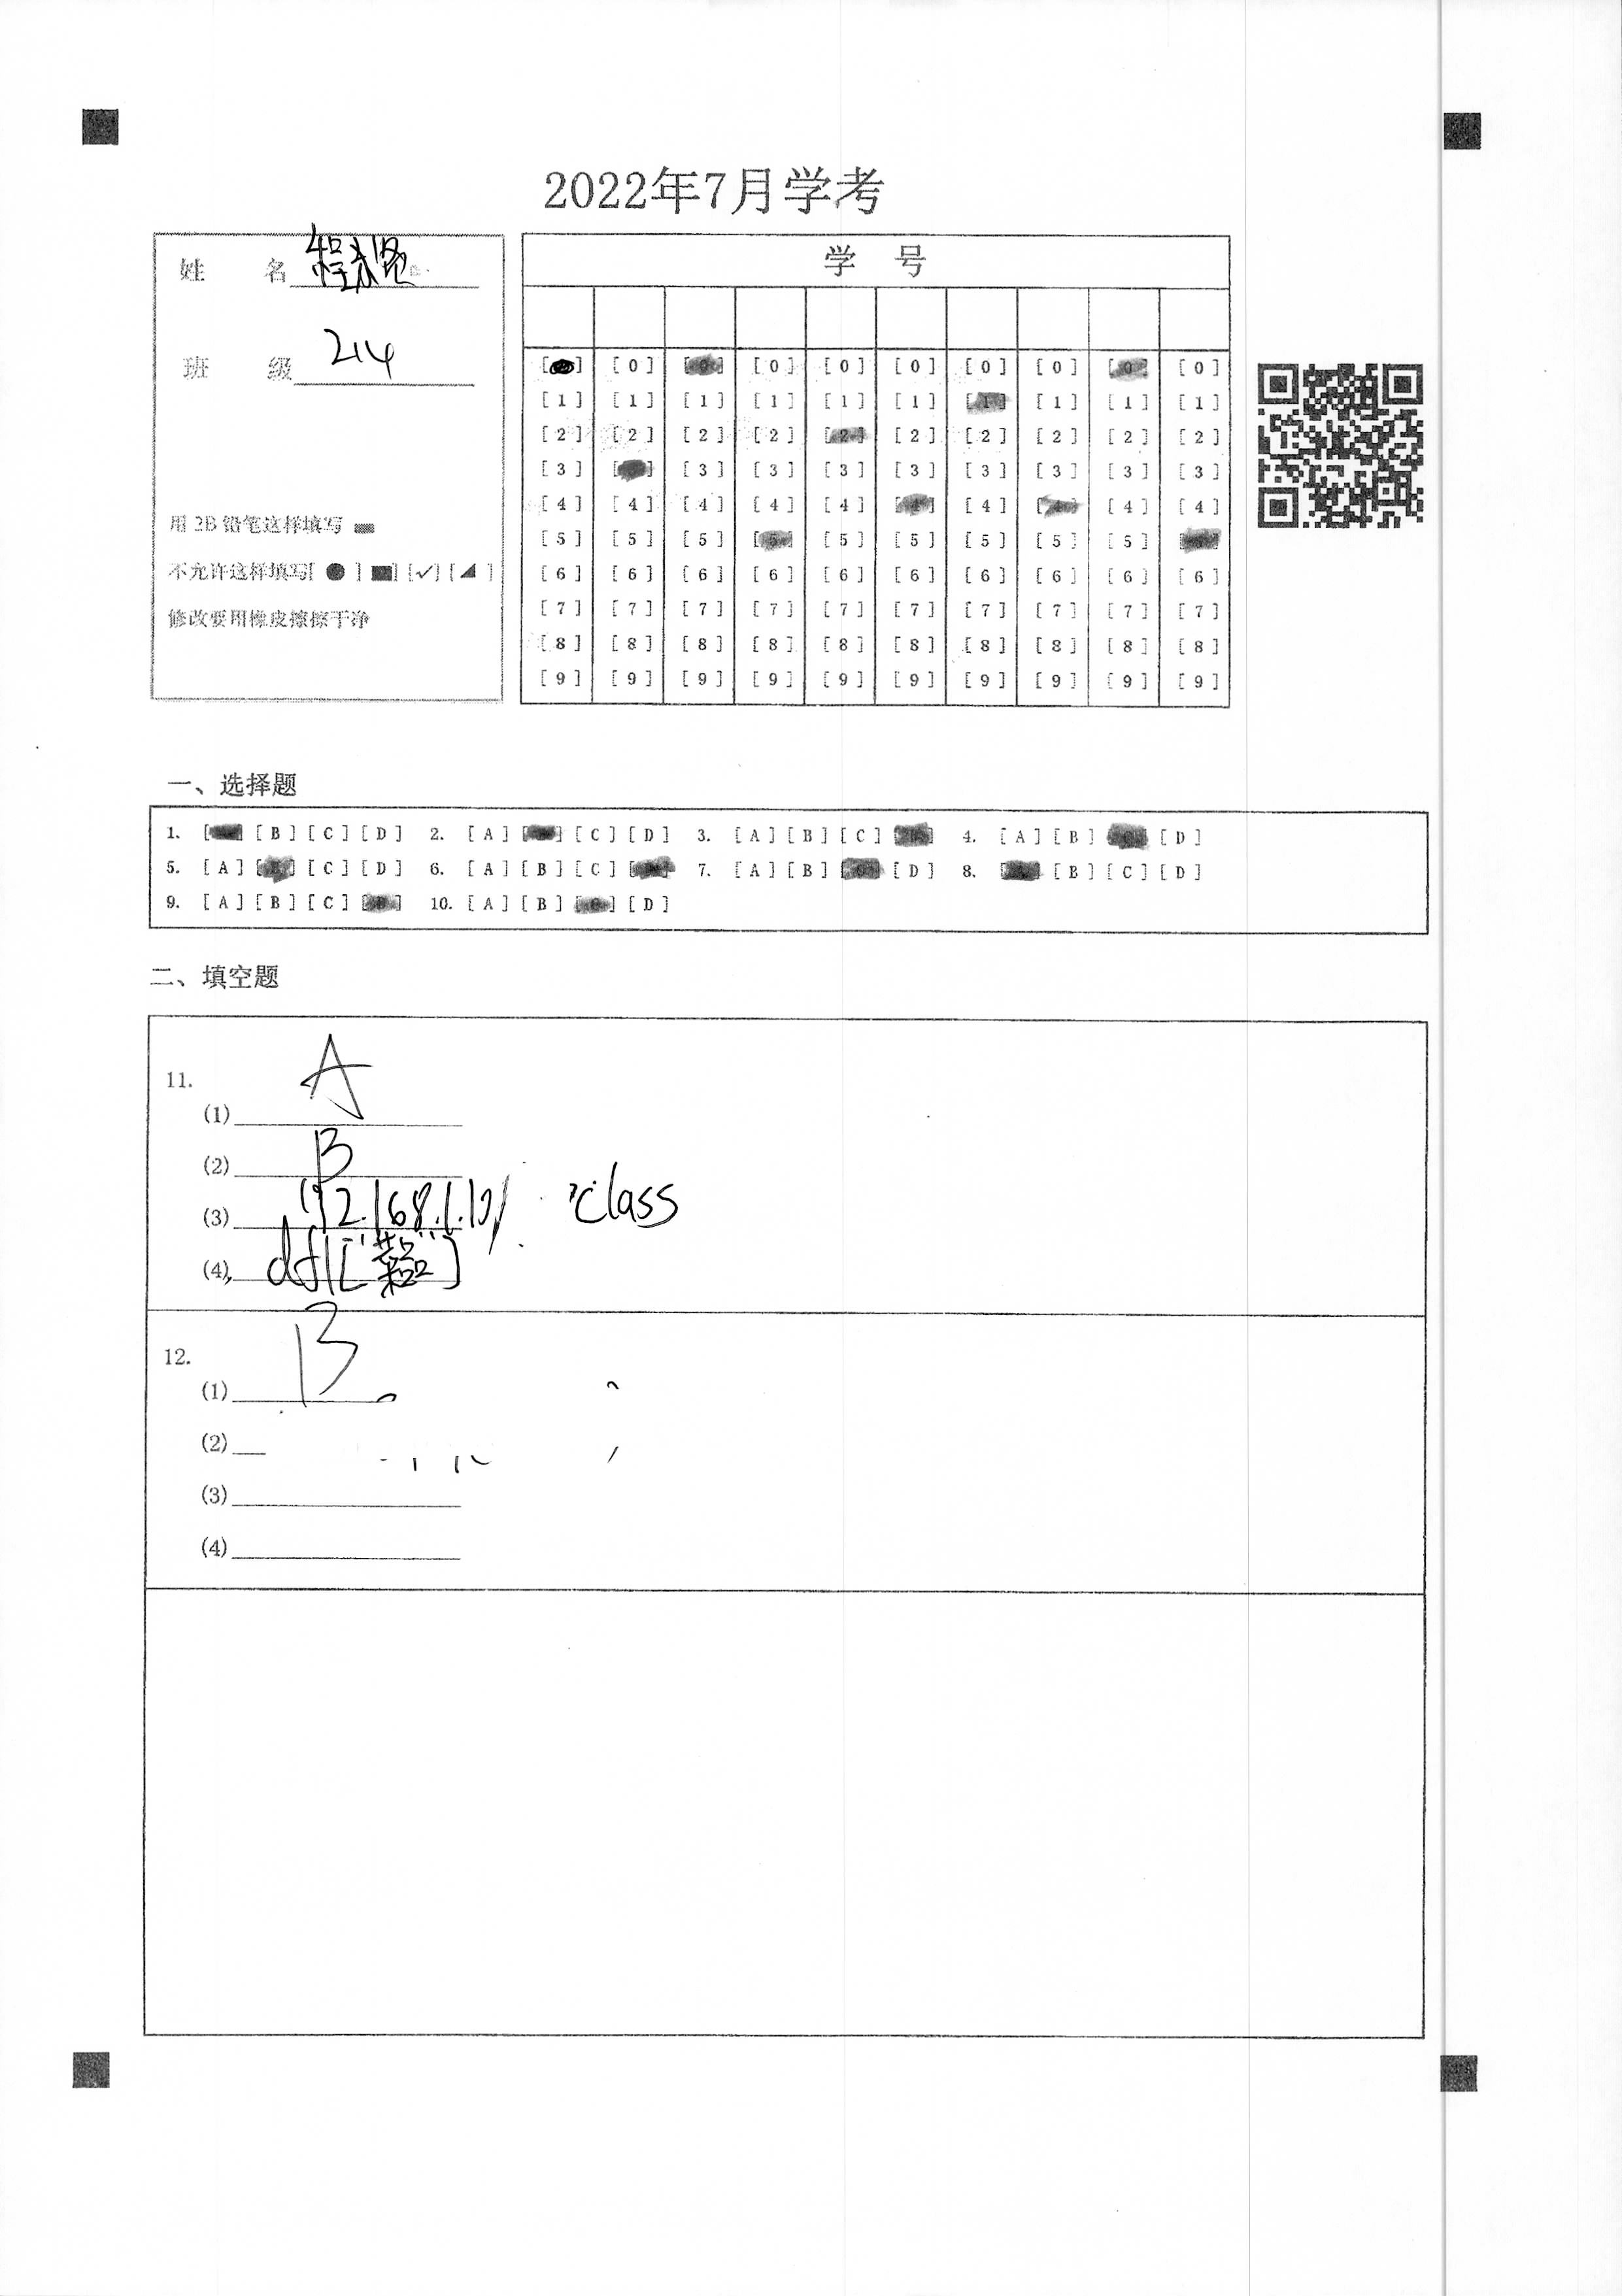 2022年7月学考
姓 名
班 级 214
用2B铅笔这样填写
不允许这样填写[ ● ] [■] [✓] [◢ ]
修改要用橡皮擦擦干净
学 号
[ ] [0] [0] [0] [0] [0] [0] [0] [0] [0]
[1] [1] [1] [1] [1] [1] [1] [1] [1] [1]
[2] [2] [2] [2] [2] [2] [2] [2] [2] [2]
[3] [ ] [3] [3] [3] [3] [3] [3] [3] [3]
[4] [4] [4] [4] [4] [4] [4] [4] [4] [4]
[5] [5] [5] [5] [5] [5] [5] [5] [5] [ ]
[6] [6] [6] [6] [6] [6] [6] [6] [6] [6]
[7] [7] [7] [7] [7] [7] [7] [7] [7] [7]
[8] [8] [8] [8] [8] [8] [8] [8] [8] [8]
[9] [9] [9] [9] [9] [9] [9] [9] [9] [9]
一、选择题
1. [ ] [B] [C] [D] 2. [A] [ ] [C] [D] 3. [A] [B] [C] [ ] 4. [A] [B] [ ] [D]
5. [A] [ ] [C] [D] 6. [A] [B] [C] [ ] 7. [A] [B] [ ] [D] 8. [ ] [B] [C] [D]
9. [A] [B] [C] [ ] 10. [A] [B] [ ] [D]
二、填空题
11.
(1) A
(2) B
(3) 192.168.1.101 class
(4) df1[" "]
12.
(1) B
(2)
(3)
(4)